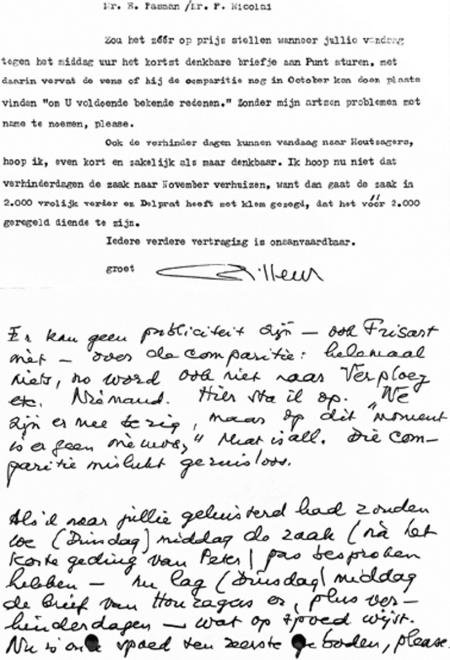 Mr. E. Pasman /Mr. P. Nicolai
Zou het zéér op prijs stellen wanneer jullie vandaag
tegen het middag uur het kortst denkbare briefje aan Punt sturen, met
daarin vervat de wens of hij de comparitie nog in October kan doen plaats
vinden "om U voldoende bekende redenen." Zonder mijn artsen problemen met
name te noemen, please.
Ook de verhinder dagen kunnen vandaag naar Houtzagers,
hoop ik, even kort en zakelijk als maar denkbaar. Ik hoop nu niet dat
verhinderdagen de zaak naar November verhuizen, want dan gaat de zaak in
2.000 vrolijk verder en Delprat heeft met klem gezegd, dat het vóór 2.000
geregeld diende te zijn.
Iedere verdere vertraging is onaanvaardbaar.
groet
Er kan geen publiciteit zijn – ook Frisart
niet – over de comparitie: helemaal
niets, no word ook niet naar Verploeg
etc. Niemand. Hier sta ik op. "We
zijn er mee bezig, maar op dit moment
is er geen nieuws," that is all. Die com-
paritie mislukt geruisloos.
Als ik naar jullie geluisterd had zouden
we (Dinsdag) middag de zaak (na het
korte geding van Peter) pas besproken
hebben – nu lag (dinsdag) middag
de brief van Houtzagers er, plus ver-
hinderdagen – wat op spoed wijst.
Nu is ook spoed ten zeerste geboden, please.